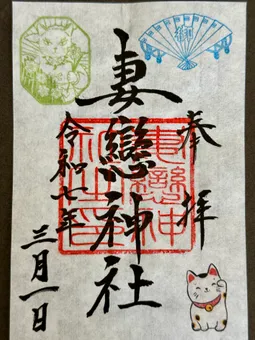 奉拝
妻戀神社
妻戀神社印
令和七年
三月一日